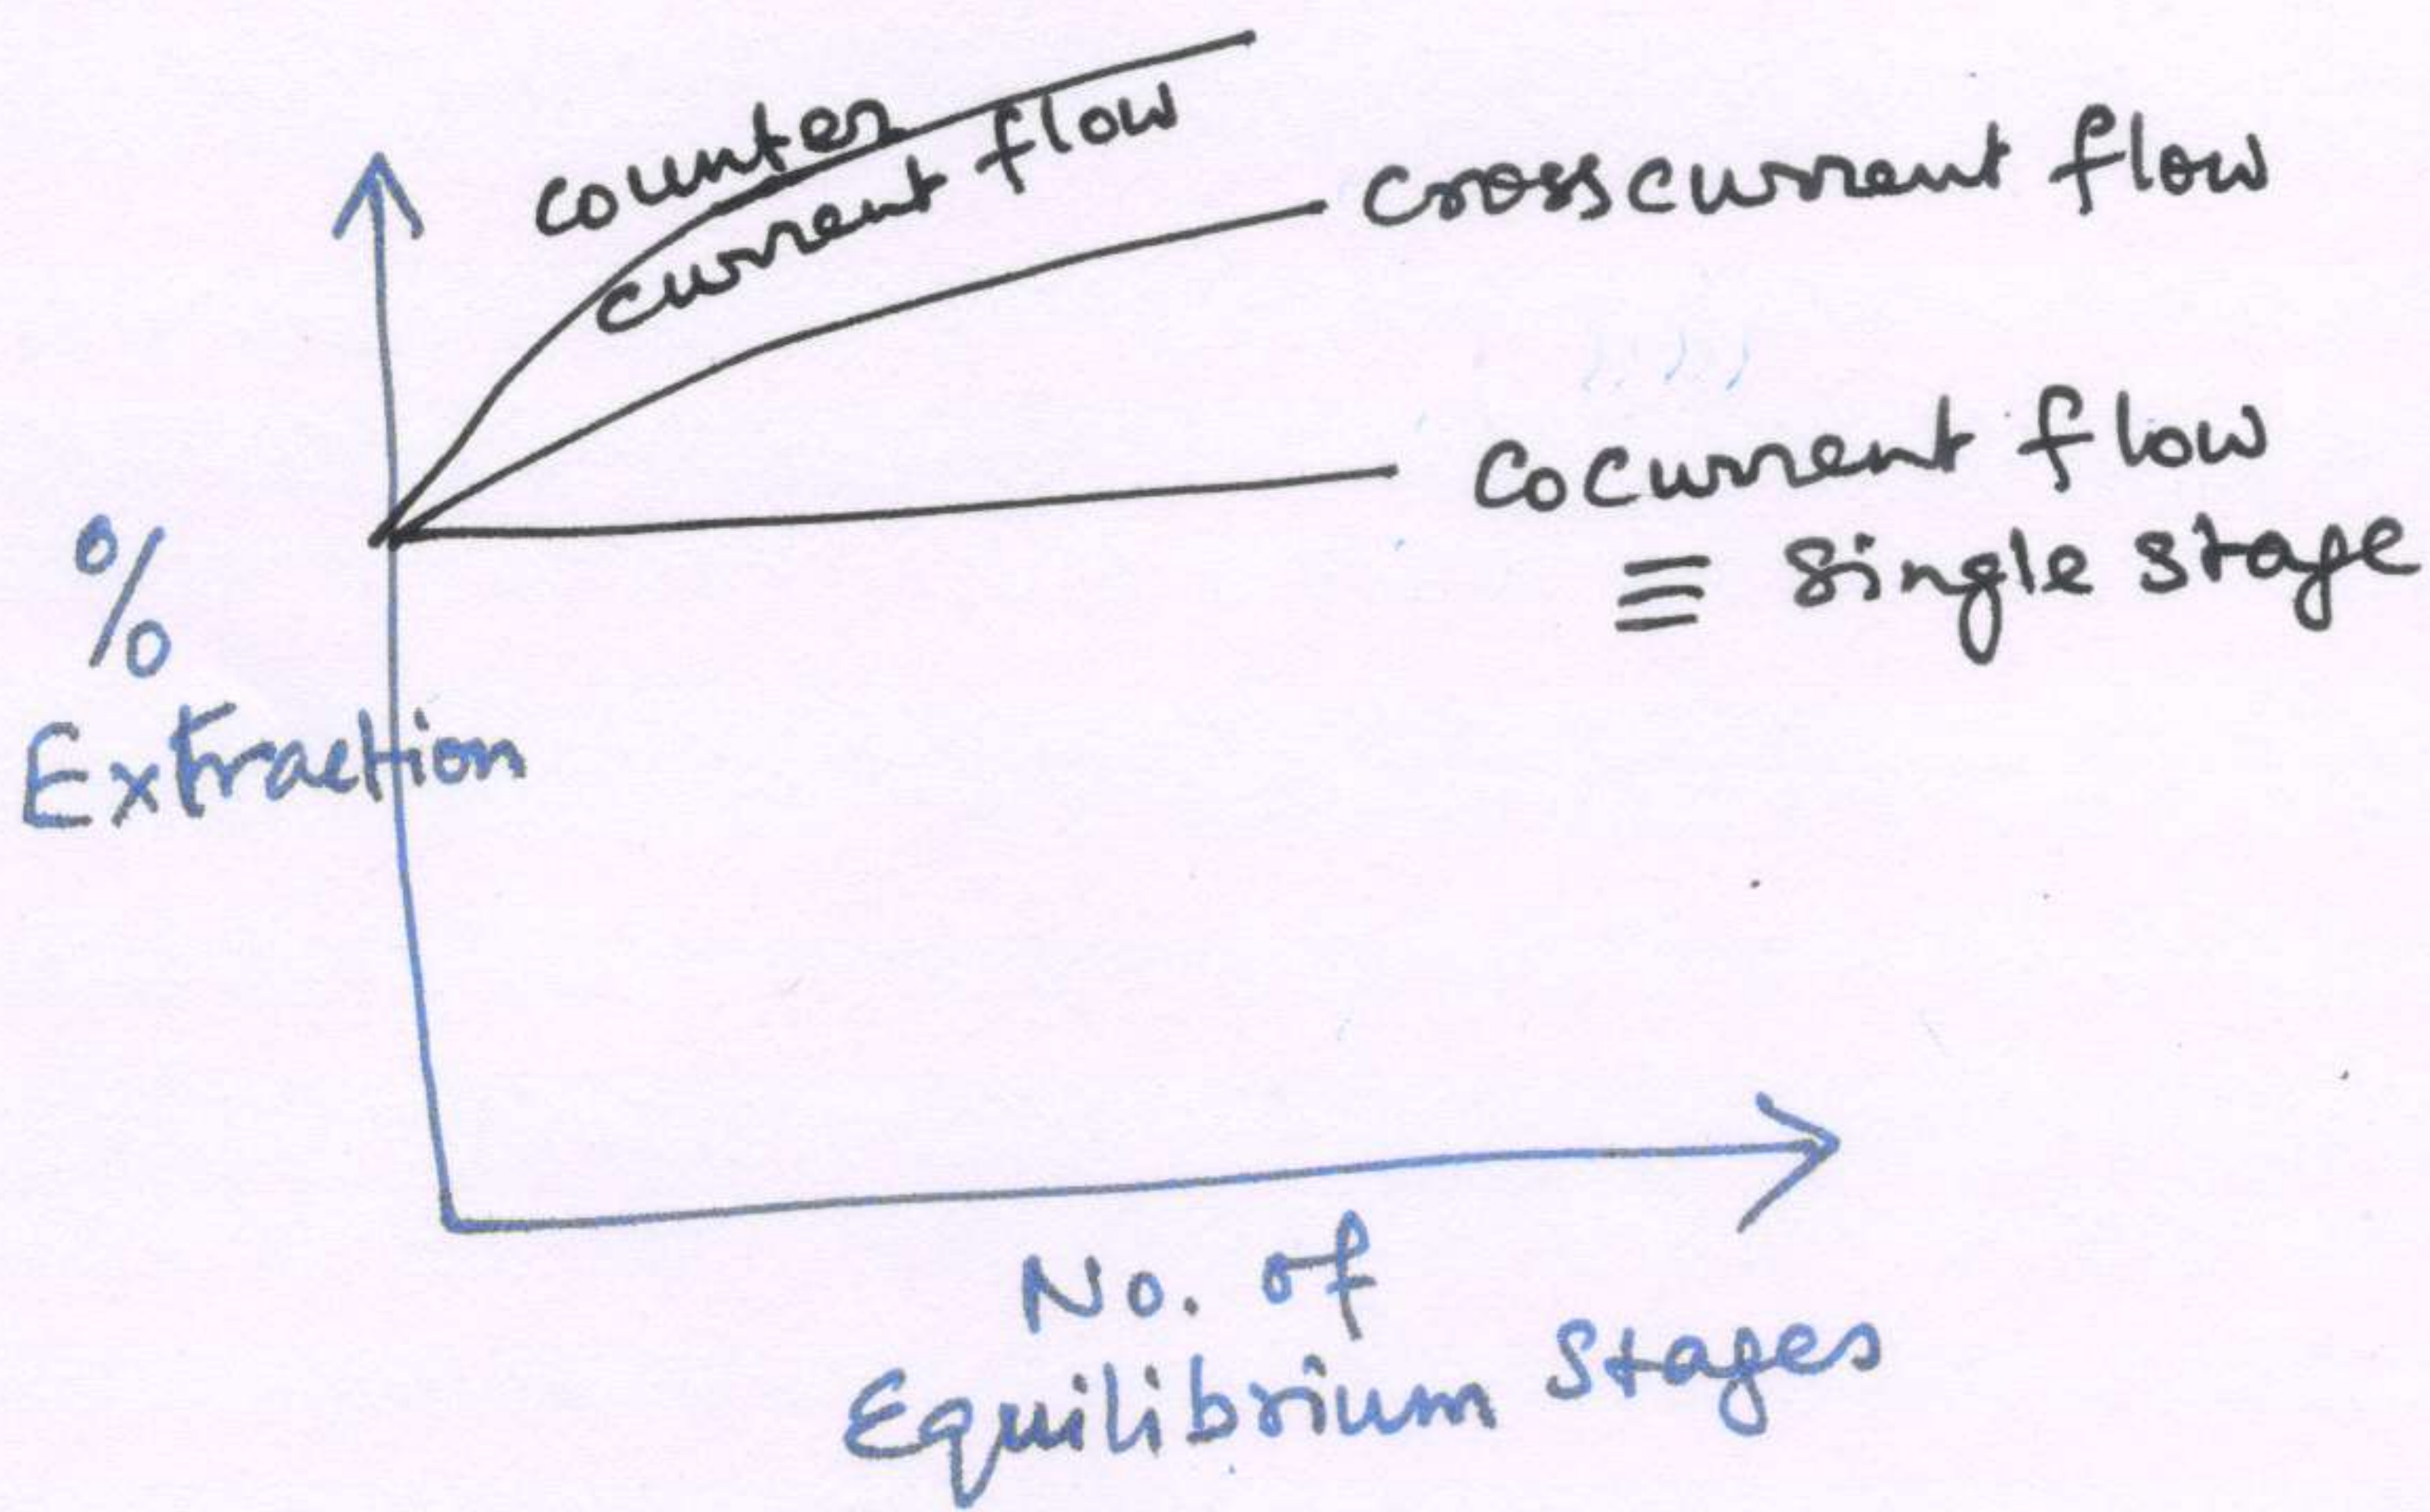 counter
current flow
crosscurrent flow
Cocurrent flow
≡ Single stage
%
Extraction
No. of
Equilibrium Stages